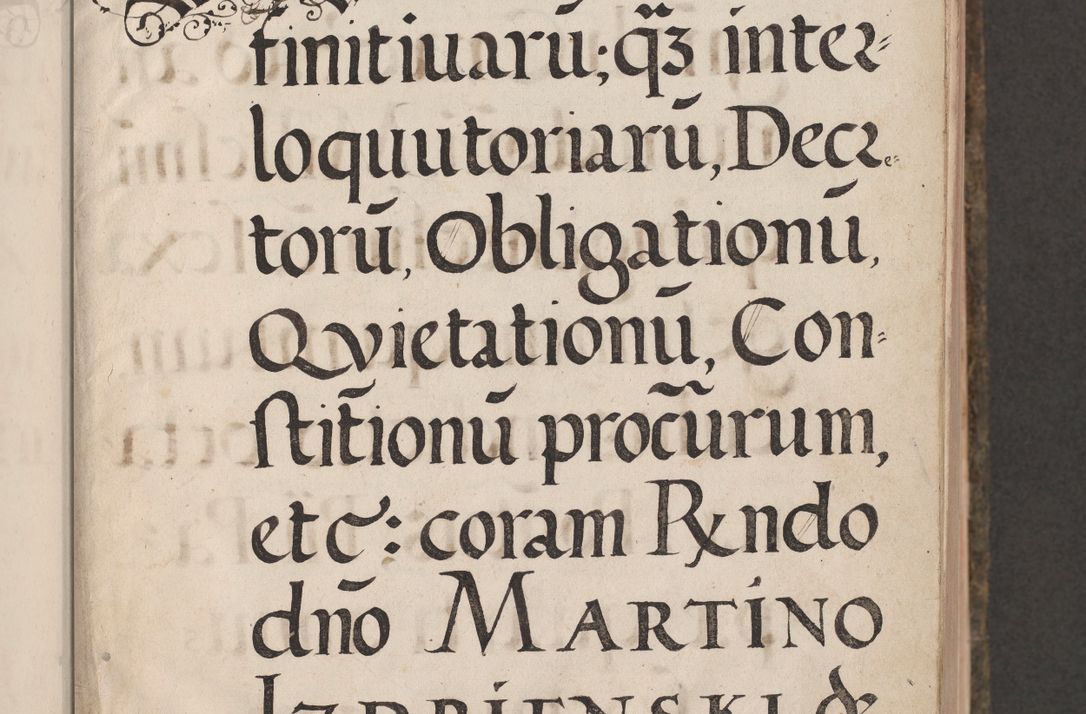 finitiuarū; qʒ̃ inter=
loquutoriarū, Decre=
torū, Obligationū,
Qvietationū, Con=
ſtit̃ionū procũrum,
etc̃: coram Rxndo
dño MARTINO
IZDBIENSKI &